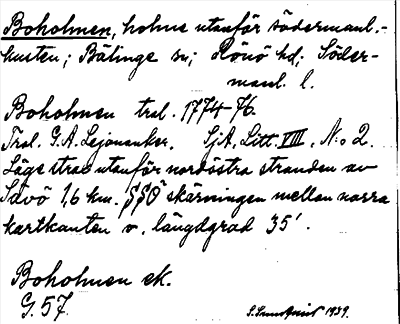 Boholmen, holme utanför södermanl.-
kusten; Bälinge sn; Rönö hd; Söder-
manl. l.
Boholmen tral. 1774-76.
Tral. G.A. Lejonanker. SjA, Litt. VIII, N:o 2.
Läge strax utanför nordöstra stranden av
Sävö 1,6 km. SSO skärningen mellan norra
kartkanten o. längdgrad 35'.
Boholmen ek.
G. 57.
S. Sundqvist 1939.